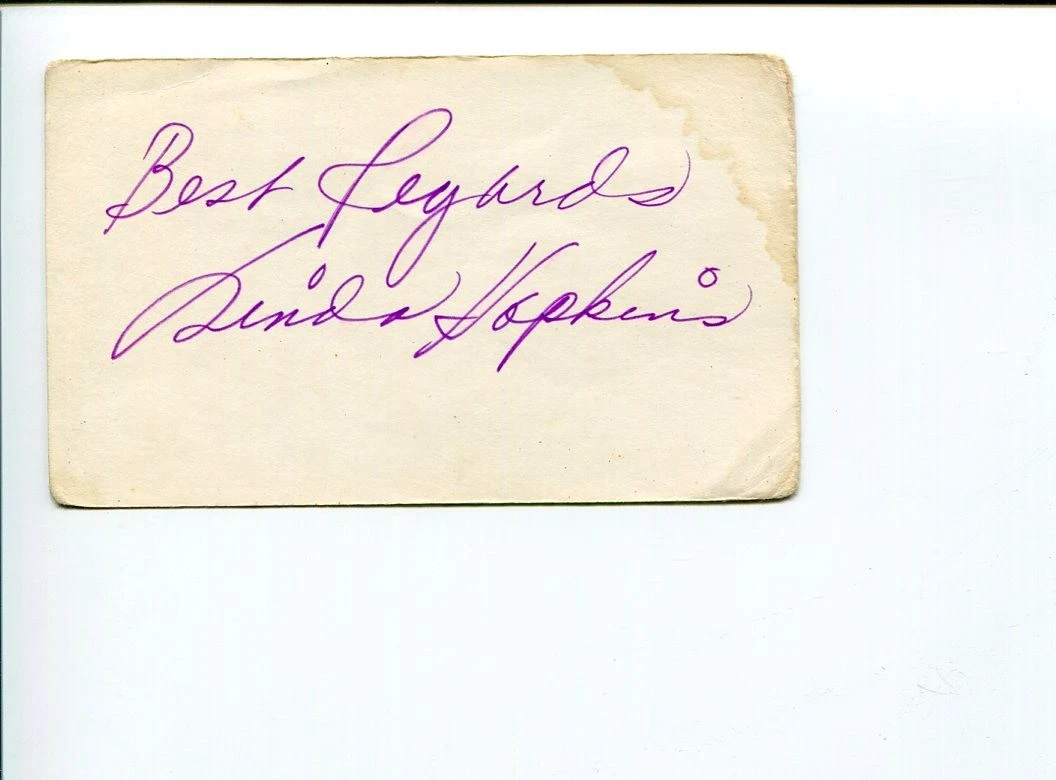 Best Regards
Linda Hopkins